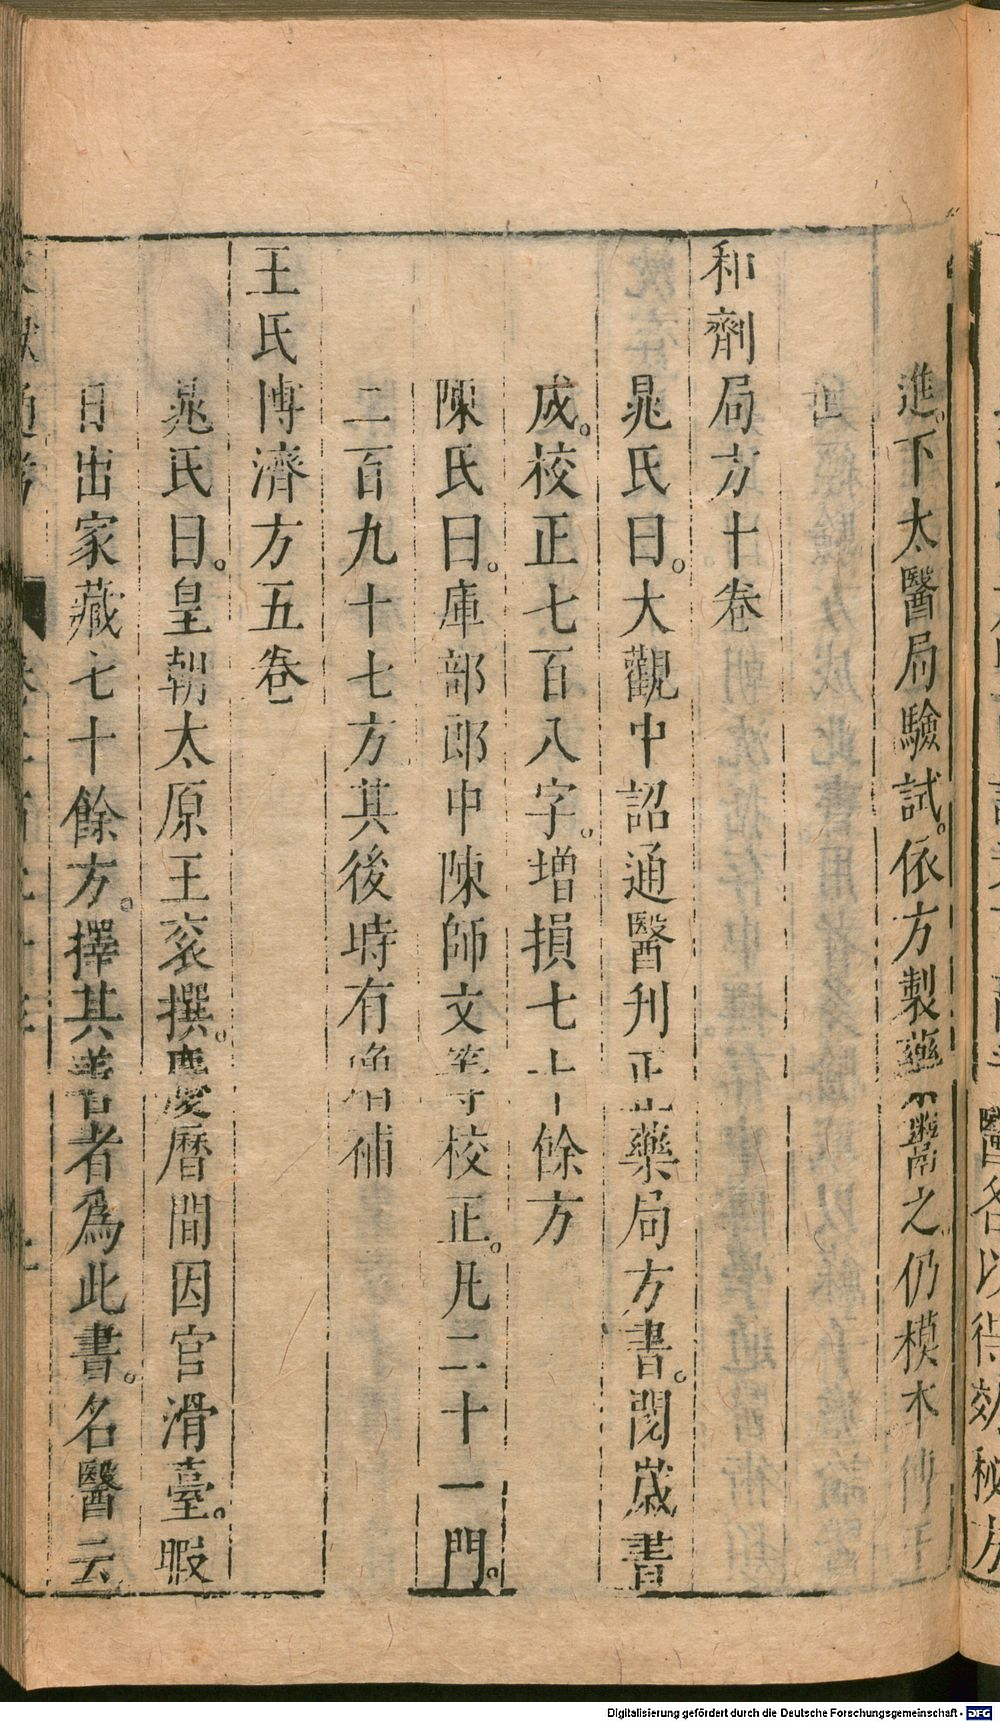 進。下太醫局驗試。依方製藥鬻之仍模本傳于
世
和劑局方十卷
晁氏曰。大觀中詔通醫刋正藥局方書。閱歲書
成。校正七百八字。增損七十餘方
陳氏曰。庫部郎中陳師文等校正。凡二十一門。
二百九十七方其後時有增補
王氏博濟方五卷
晁氏曰。皇朝太原王衮撰。慶曆間因官滑臺。暇
日出家藏七十餘方。擇其善者爲此書。名醫云
醫各以得效秘方
Digitalisierung gefördert durch die Deutsche Forschungsgemeinschaft - DFG